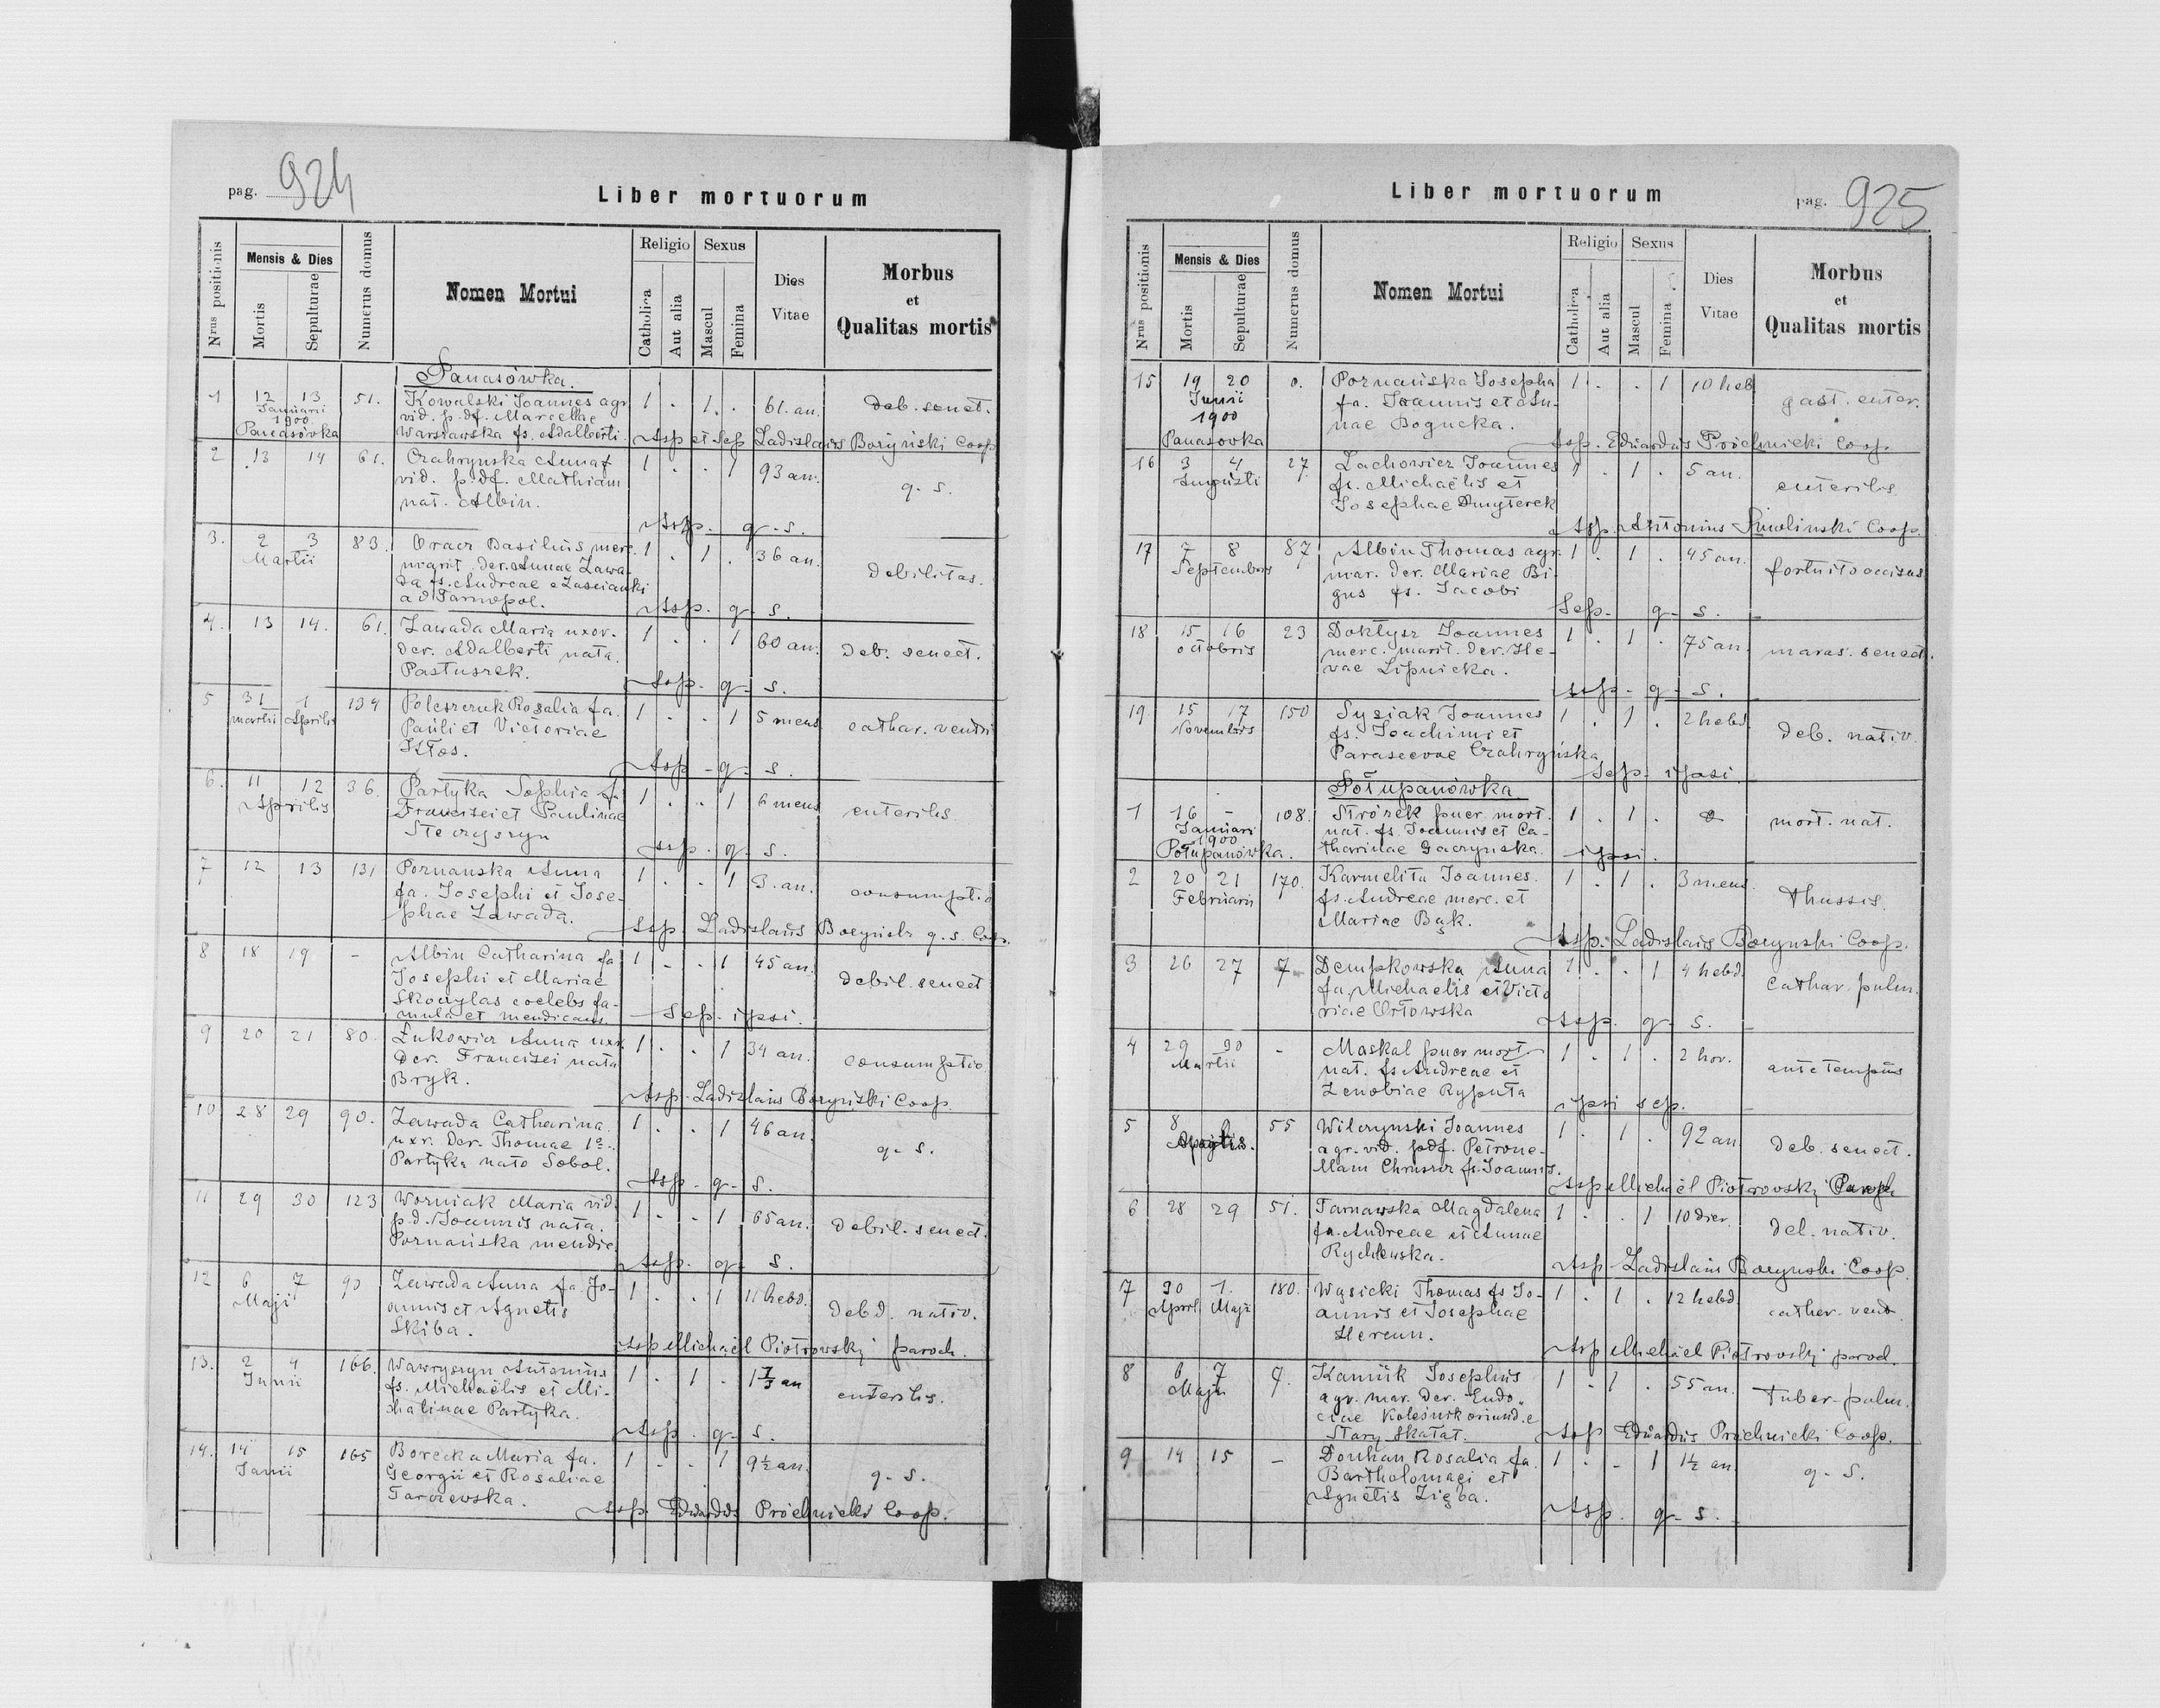 pag. 924
Liber mortuorum
Nrus positionis
Mensis & Dies
Mortis
Sepulturae
Numerus domus
Nomen Mortui
Religio
Catholica
Aut alia
Sexus
Mascul
Femina
Dies Vitae
Morbus
et
Qualitas mortis
Panasówka.
1 12 13 51. Kowalski Joannes agr. 1 . 1 . 61. an. deb. senect.
Januarii vid. p. df. Marcellae
1900
Panasówka Warsiawska fs. Adalberti. Assp et sep Ladislaus Boryński Coop
2 13 14 61. Czahrynska Anna 1 . . 1 93 an. q. s.
vid. p. df. Mathiam
nat. Albin.
Assp. q. s.
3. 2 3 83. Oracz Basilius merc. 1 . 1 . 36 an. debilitas.
Martii marit. der. Annae Zawa-
da fs. Andreae e Zascianki
ad Tarnopol. Assp. q. s.
4. 13 14. 61. Zawada Maria uxor. 1 . . 1 60 an. deb. senect.
der. Adalberti nata
Pastuszek.
Assp. q. s.
5 31 1 134 Poleszczuk Rosalia fa. 1 . . 1 5 mens. cathar. ventri
martii Aprilis Pauli et Victoriae
Kłos.
Assp. q. s.
6. 11 12 36. Partyka Sophia fa. 1 . . 1 6 mens. enteritis
Aprilis Francisci et Paulinae
Steczyszyn
Assp. q. s.
7 12 13 131 Poznanska Anna 1 . . 1 3. an. consumptio
fa. Josephi et Jose-
phae Zawada.
Assp Ladislaus Boryński q. s. Coop.
8 18 19 - Albin Catharina fa 1 . . 1 45 an. debil. senect
Josephi et Mariae
Skoczylas coelebs fa-
mula et mendicans. Sep. ipsi.
9 20 21 80. Łukowicz Anna uxr. 1 . . 1 34 an. consumptio
der. Francisci nata
Bryk.
Assp. Ladislaus Boryński Coop.
10 28 29 90. Zawada Catharina 1 . . 1 46 an. q. s.
uxr. der. Thomae 1o
Partyka nato Sobol.
Assp. q. s.
11 29 30 123 Woźniak Maria vid. 1 . . 1 65 an. debil. senect.
p. d. Joannis nata.
Poznańska mendic.
Assp. q. s.
12 6 7 90 Zawada Anna fa. Jo- 1 . . 1 11 hebd. debil. nativ.
Maji annis et Agnetis
Skiba.
Assp Michaël Piotrowski paroch.
13. 2 4 166. Wawryszyn Antonius 1 . 1 . enteritis.
Junii fs. Michaëlis et Mi-
chalinae Partyka.
Assp. q. s.
14. 14 15 165 Borecka Maria fa. 1 . . 1 9½ an. q. s.
Junii Georgii et Rosaliae
Tarczewska.
Assp. Eduardus Próchnicki Coop.
Liber mortuorum
pag. 925
Nrus positionis
Mensis & Dies
Mortis
Sepulturae
Numerus domus
Nomen Mortui
Religio
Catholica
Aut alia
Sexus
Mascul
Femina
Dies Vitae
Morbus
et
Qualitas mortis
15 19 20 0. Poznańska Josepha 1 . . 1 10 heb gast. enter.
Junii fa. Joannis et An-
1900 nae Bogucka.
Panasowka Assp. Eduardus Próchnicki Coop.
16 3 4 27 Lachowicz Joannes 1 . 1 . 5 an. enteritis
Augusti fs. Michaëlis et
Josephae Dmyterek
Assp. Antonius Coop.
17 7 8 87 Albin Thomas agr. 1 . 1 . 45 an. fortuito occisus
Septembris mar. der. Mariae Bi-
gus fs. Jacobi
Sep. q. s.
18 15 16 23 Doktysz Joannes 1 . 1 . 75 an. maras. senect.
octobris merc. marit. der. He-
vae Lipnicka.
Assp. q. s.
19 15 17 150 Sysiak Joannes 1 . 1 . 2 hebd. deb. nativ.
Novembris fs. Joachimi et
Parascevae Czahryńska
Sep. ipsi.
Połupanówka
1 16 - 108. Strózek puer mort. 1 . 1 . mort. nat.
Januari nat. fs. Joannis et Ca-
1900
Połupanówka. tharinae Gaczyńska. ipsi.
2 20 21 170. Karmelita Joannes. 1 . 1 . 3 mens. thussis.
Februarii fs. Andreae merc. et
Mariae Bąk.
Assp. Ladislaus Boryński Coop.
3 26 27 7 Dempkowska Anna 1 . . 1 4 hebd. cathar. pulm.
fa. Michaelis et Victo
riae Orłowska
Assp. q. s.
4 29 30 - Maskal puer mort. 1 . 1 . 2 hor. ante tempus
Martii nat. fs Andreae et
Zenobiae Ryputa
ipsi sep.
5 8 55 Wilczynski Joannes 1 . 1 . 92 an deb. senect.
Aprilis. agr. vid. pdf. Petrone-
llam fs. Joannis.
Assp Michaël Piotrowski Paroch
6 28 29 51. Tarnawska Magdalena 1 . . 1 10 dier. del. nativ.
fa. Andreae et Annae
Rychlewska.
Assp Ladislaus Boryński Coop.
7 30 1. 180. Wąsicki Thomas fs Jo- 1 . 1 . 12 hebd. cathar. vent.
April Maji annis et Josephae
Hercun.
Assp Michaël Piotrowski paroch.
8 6 7 Kaniuk Josephus 1 . 1 . 55 an. tuber. pulm.
Maji agr. mar. der. Eudo-
ciae Koleśnik oriund. e
Stary Skałat. Assp Eduardus Próchnicki Coop.
9 14 15 - Donhan Rosalia fa. 1 . - 1 1½ an. q. s.
Bartholomaei et
Agnetis Zięba.
Assp. q. s.